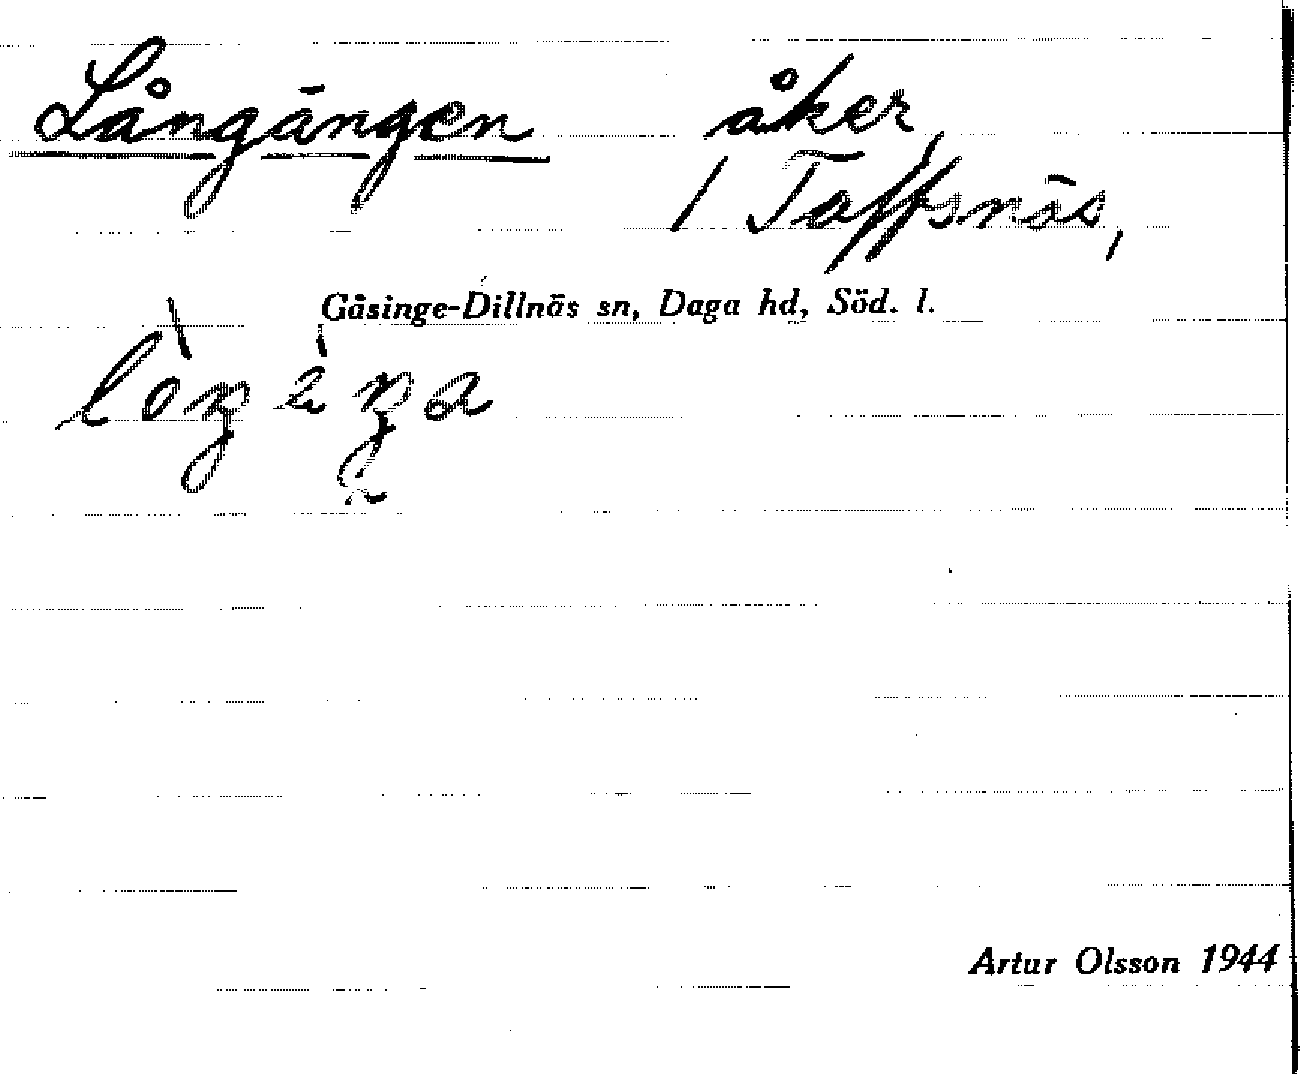 Långängen åker,
1 Taffsnäs,
Gåsinge-Dillnäs sn, Daga hd, Söd. l.
Artur Olsson 1944